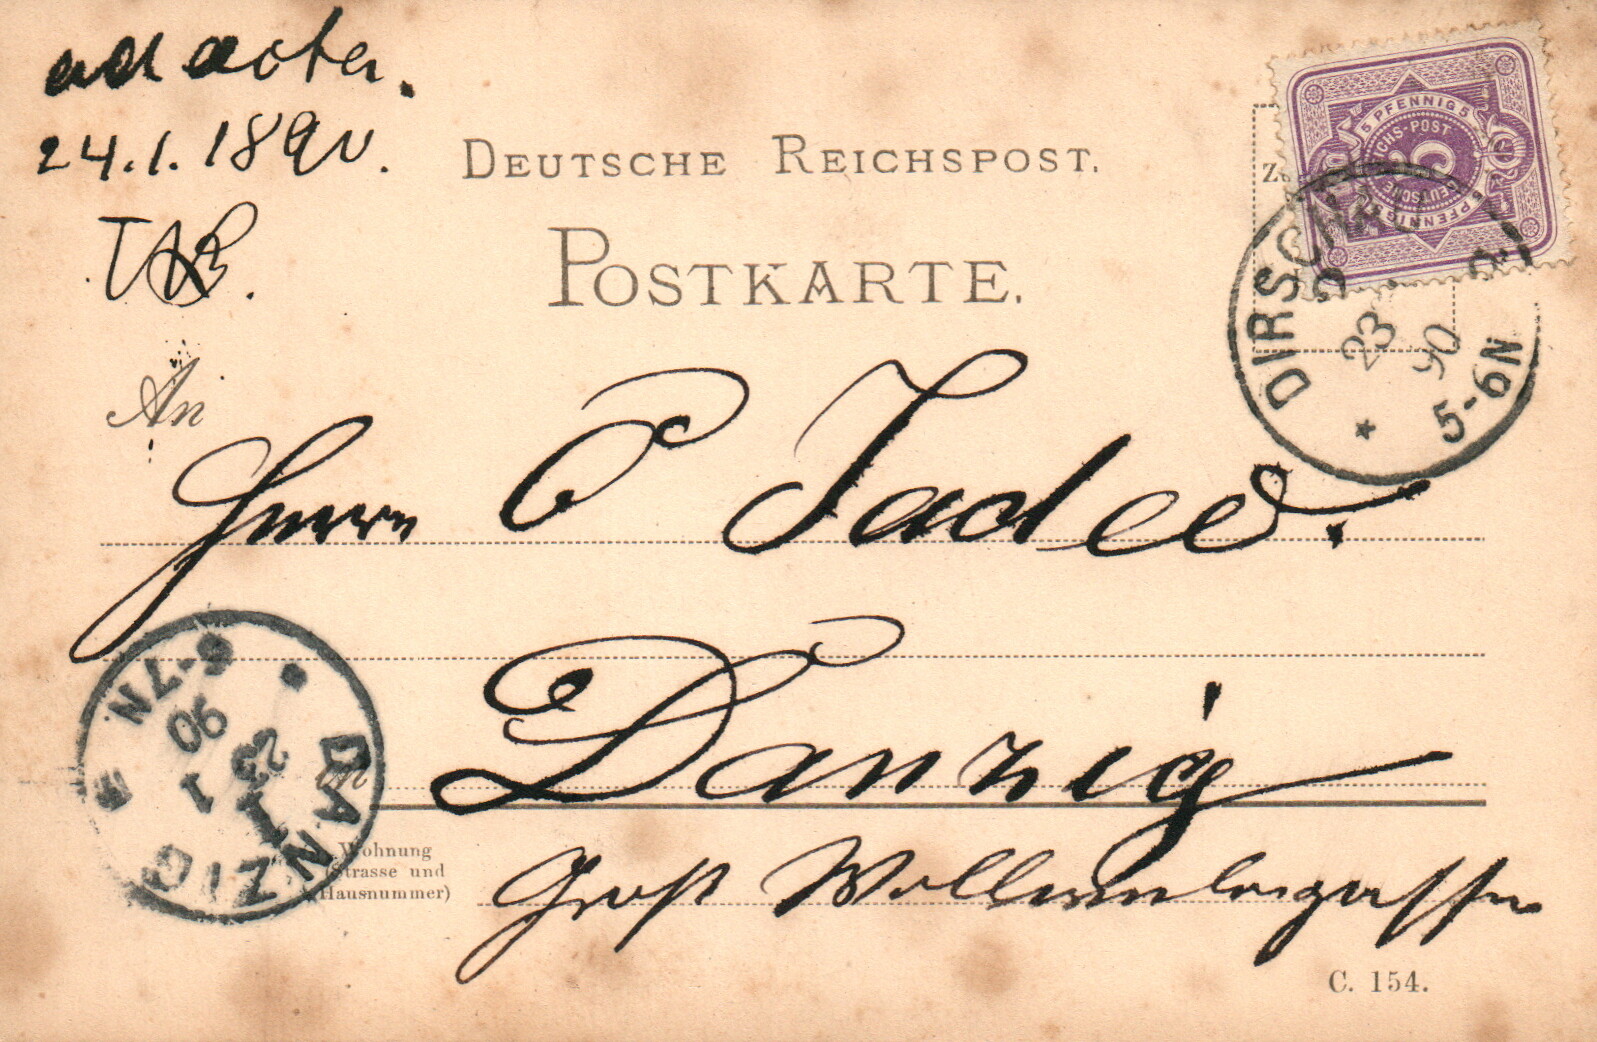 ad acta.
24.1.1890.
DEUTSCHE REICHSPOST.
POSTKARTE.
5 PFENNIG 5
REICHS-POST
DEUTSCHE
5 PFENNIG
DIRSCHAU
23
90
5-6N
An
Herrn
Danzig
6-7N
90
1
23
1
DANZIG
in
Wohnung
(Strasse und
Hausnummer)
Groß Wollwebergasse
C. 154.